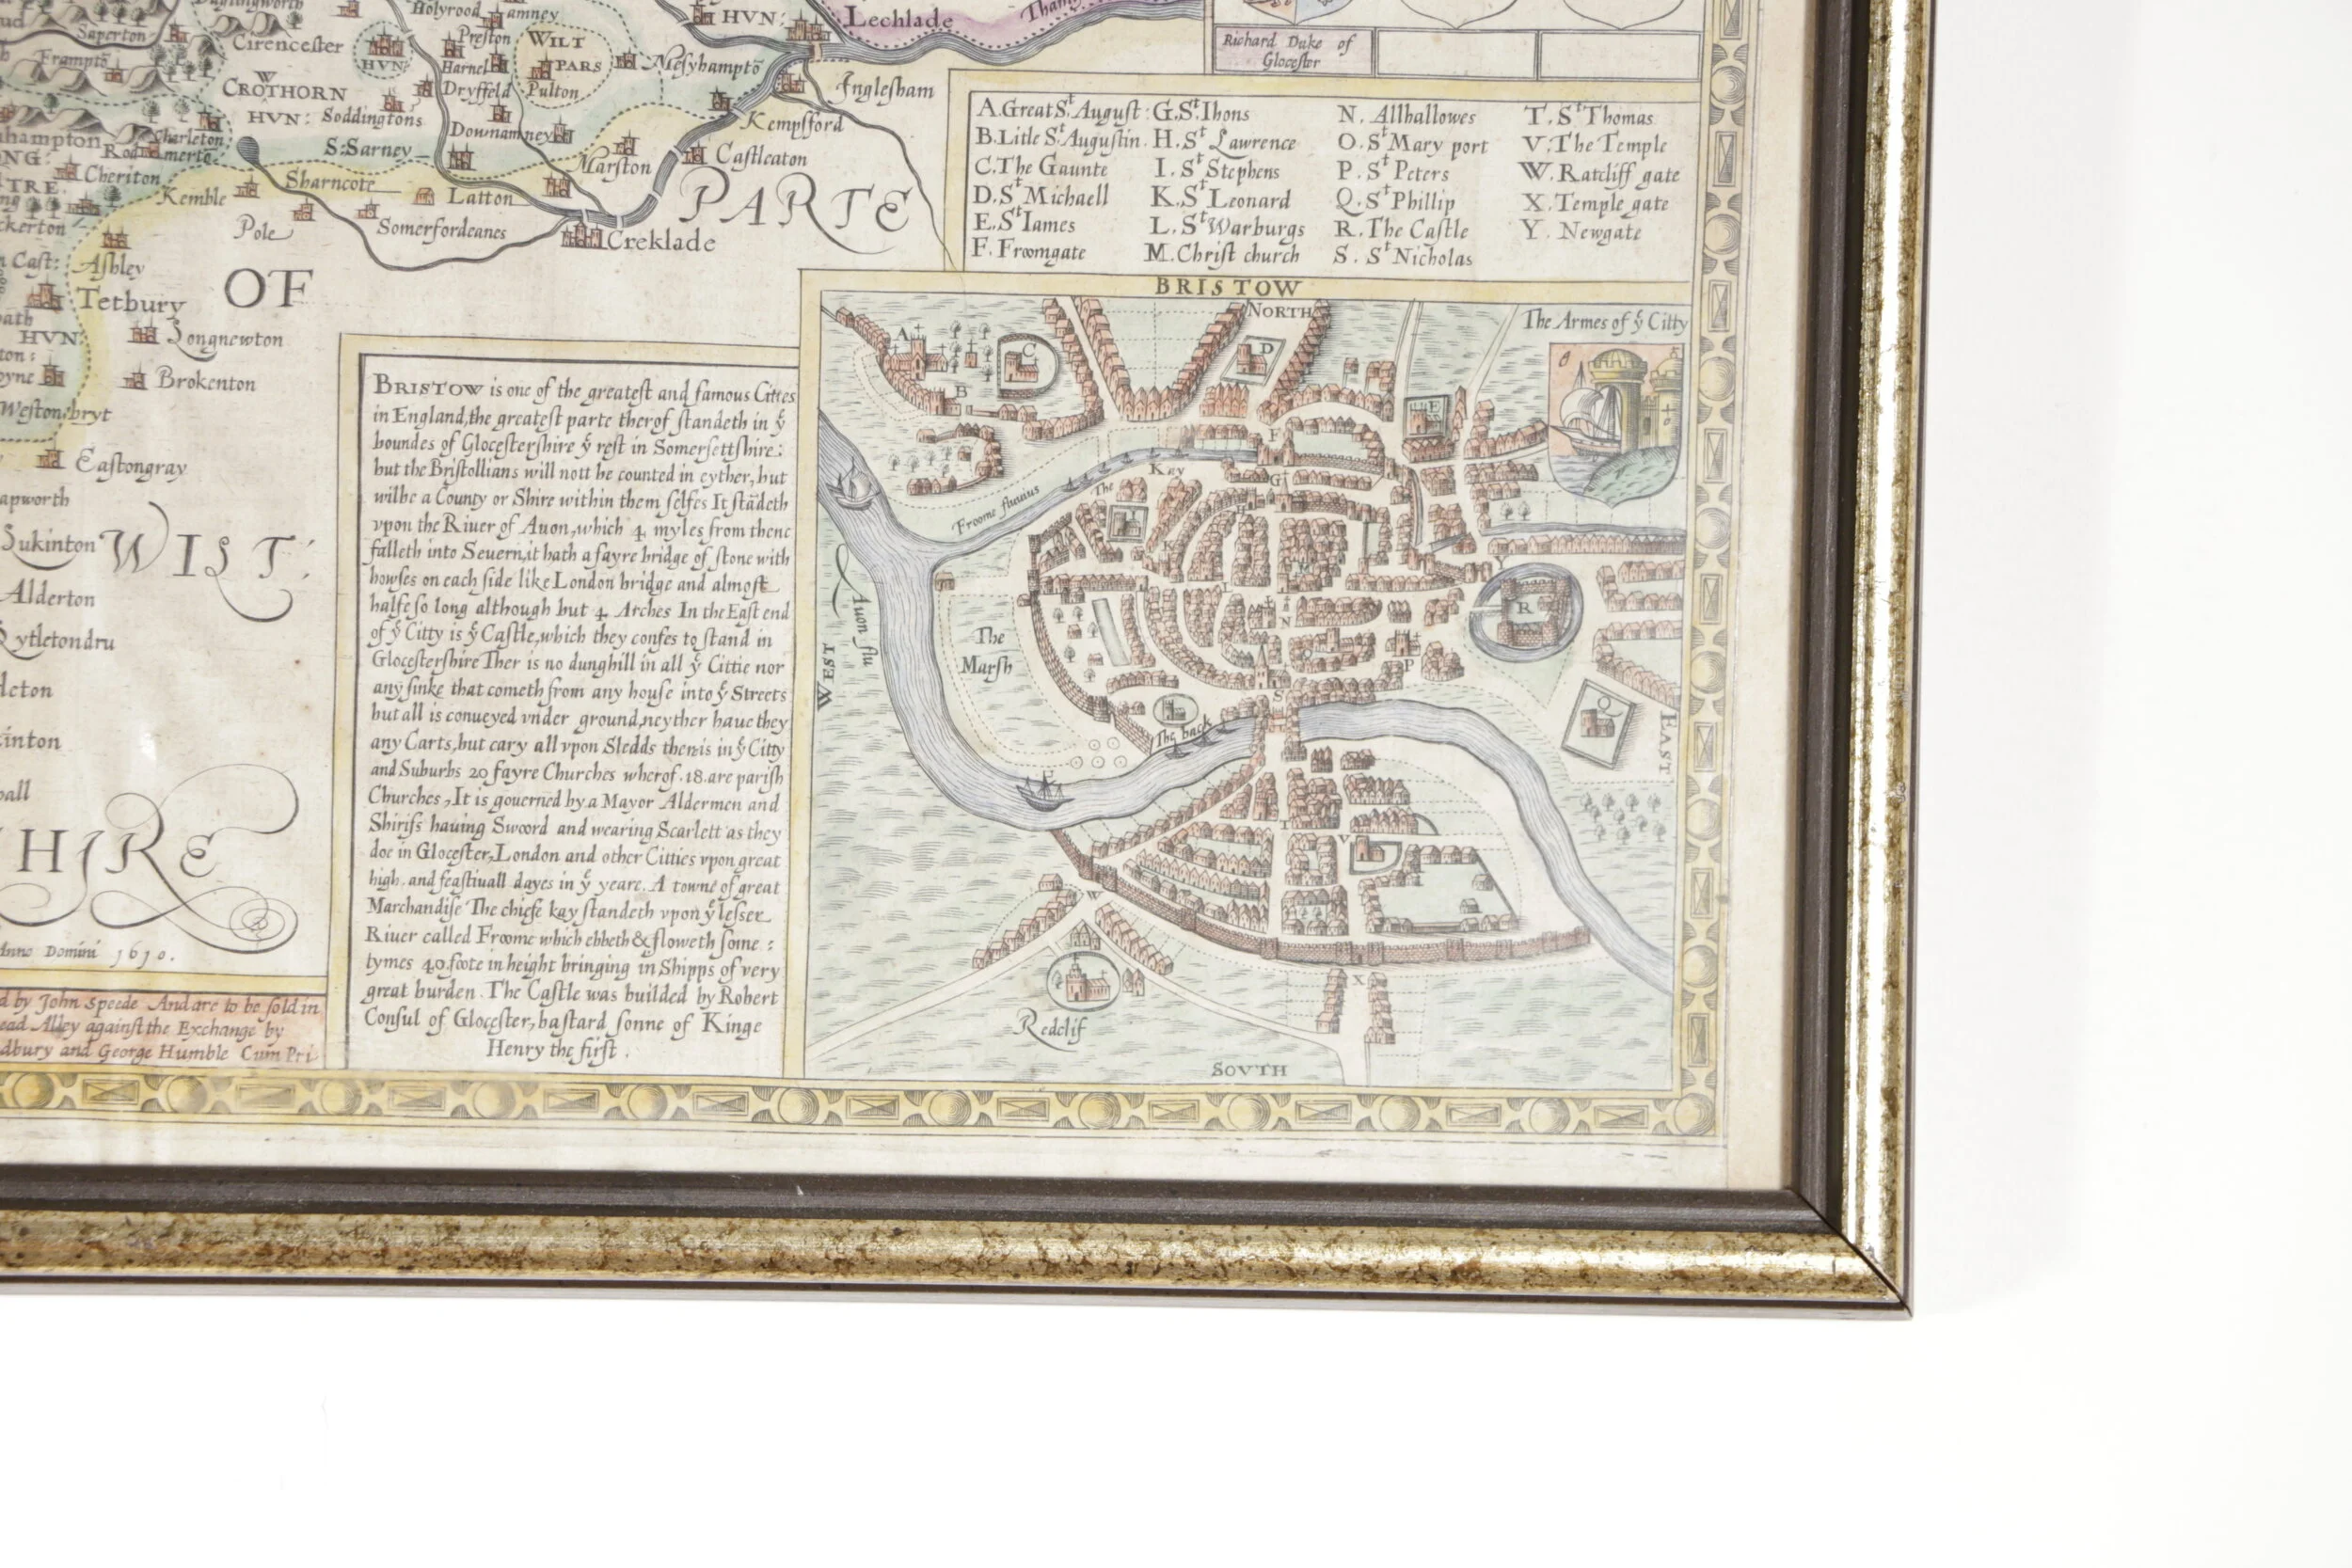 Saperton
Frampto
Cirencester
HVN:
CROTHORN
HVN: Soddingtons
Holyrood
amney
Preston
Harnel
Dryffeld
WILT
PARS
Pulton
HVN:
Lechlade
Mesyhampto
Inglesham
Kempsford
Castleaton
Marston
Downamney
Charleton
Cheriton
S:Sarney
Sharncote
Kemble
Latton
Pole
Somerfordeanes
Creklade
PARTE
OF
WILT:
HIRE
Ashley
Tetbury
Longnewton
HVN:
Brokenton
Westonbryt
Eastongray
apworth
Sukinton
Alderton
ytletondru
leton
inton
Anno Domini 1610.
d by John Speede And are to be sold in
ead Alley against the Exchange by
dbury and George Humble Cum Pri
Richard Duke of
Glocester
A. Great St August:
B. Litle St Augustin.
C. The Gaunte
D. St Michaell
E. St Iames
F. Froomgate
G. St Ihons
H. St Lawrence
I. St Stephens
K. St Leonard
L. St Warburgs
M. Christ church
N. Allhallowes
O. St Mary port
P. St Peters
Q. St Phillip
R. The Castle
S. St Nicholas
T. St Thomas
V. The Temple
W. Ratcliff gate
X. Temple gate
Y. Newgate
BRISTOW is one of the greatest and famous Cities
in England, the greatest parte therof standeth in ye
boundes of Glocestershire ye rest in Somersettshire:
but the Bristollians will nott be counted in eyther, but
wilbe a County or Shire within them selfes It stãdeth
vpon the Riuer of Auon, which 4 myles from thenc
falleth into Seuern, it hath a fayre bridge of stone with
howses on each side like London bridge and almost
halfe so long although but 4 Arches In the East end
of ye Citty is ye Castle, which they confes to stand in
Glocestershire Ther is no dunghill in all ye Cittie nor
any sinke that cometh from any house into ye Streets
but all is conueyed vnder ground, neyther haue they
any Carts, but cary all vpon Sledds ther is in ye Citty
and Suburbs 20 fayre Churches wherof .18. are parish
Churches, It is gouerned by a Mayor Aldermen and
Shirifs hauing Swoord and wearing Scarlett as they
doe in Glocester, London and other Citties vpon great
high and feastiuall dayes in ye yeare. A towne of great
Marchandise The chiefe kay standeth vpon ye lesser
Riuer called Froome which ebbeth & floweth some:
tymes 40 foote in height bringing in Shipps of very
great burden. The Castle was builded by Robert
Consul of Glocester, bastard sonne of Kinge
Henry the first.
BRISTOW
NORTH
The Armes of ye Citty
A
B
C
D
E
F
The Kay
G
Froome fluuius
Auon flu
WEST
The
Marsh
R
N
P
Q
S
The back
EAST
T
V
W
X
Redclif
SOVTH